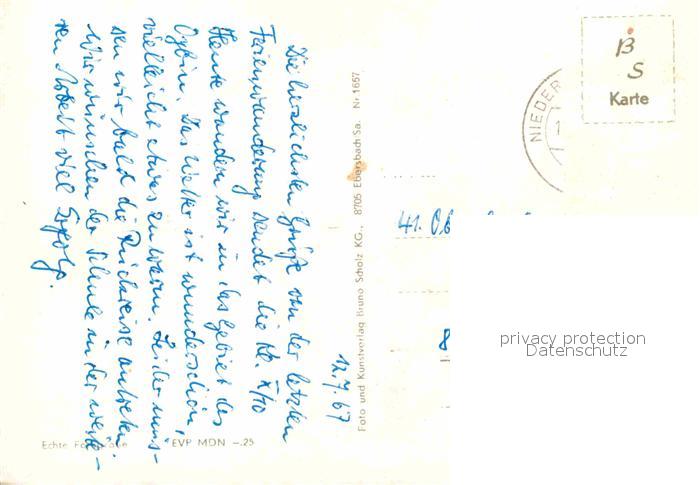 Die herzlichsten Grüße von der letzten
Ferienwanderung sendet die Kl. X/10
Heute wandern wir in das Gebiet des
Oybin. Das Wetter ist wunderschön,
vielleicht etwas zu warm. Leider müs-
sen wir bald die Rückreise antreten.
Wir wünschen der Schule in der weite-
ren Arbeit viel Erfolg.
12.7.67
Foto und Kunstverlag Bruno Scholz KG., 8705 Ebersbach Sa. Nr 1657
Echte
EVP MDN -.25
NIEDER
1
B
S
Karte
41. Ob
8
privacy protection
Datenschutz